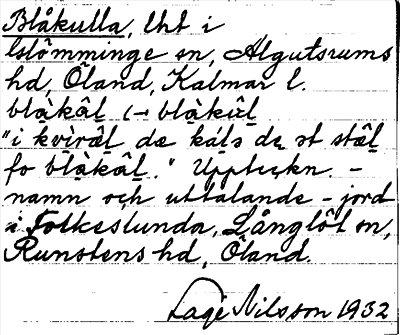 Blåkulla, lht i
Glömminge sn, Algutsrums
hd, Öland, Kalmar l.
blàkâl (→ blàkûl
"i kvìrâl dæ káls dę st stål
fo blàkâl." Uppteckn. -
namn och uttalande - jord
i Folkeslunda, Långlöt sn,
Runstens hd, Öland.
Lage Nilsson 1932